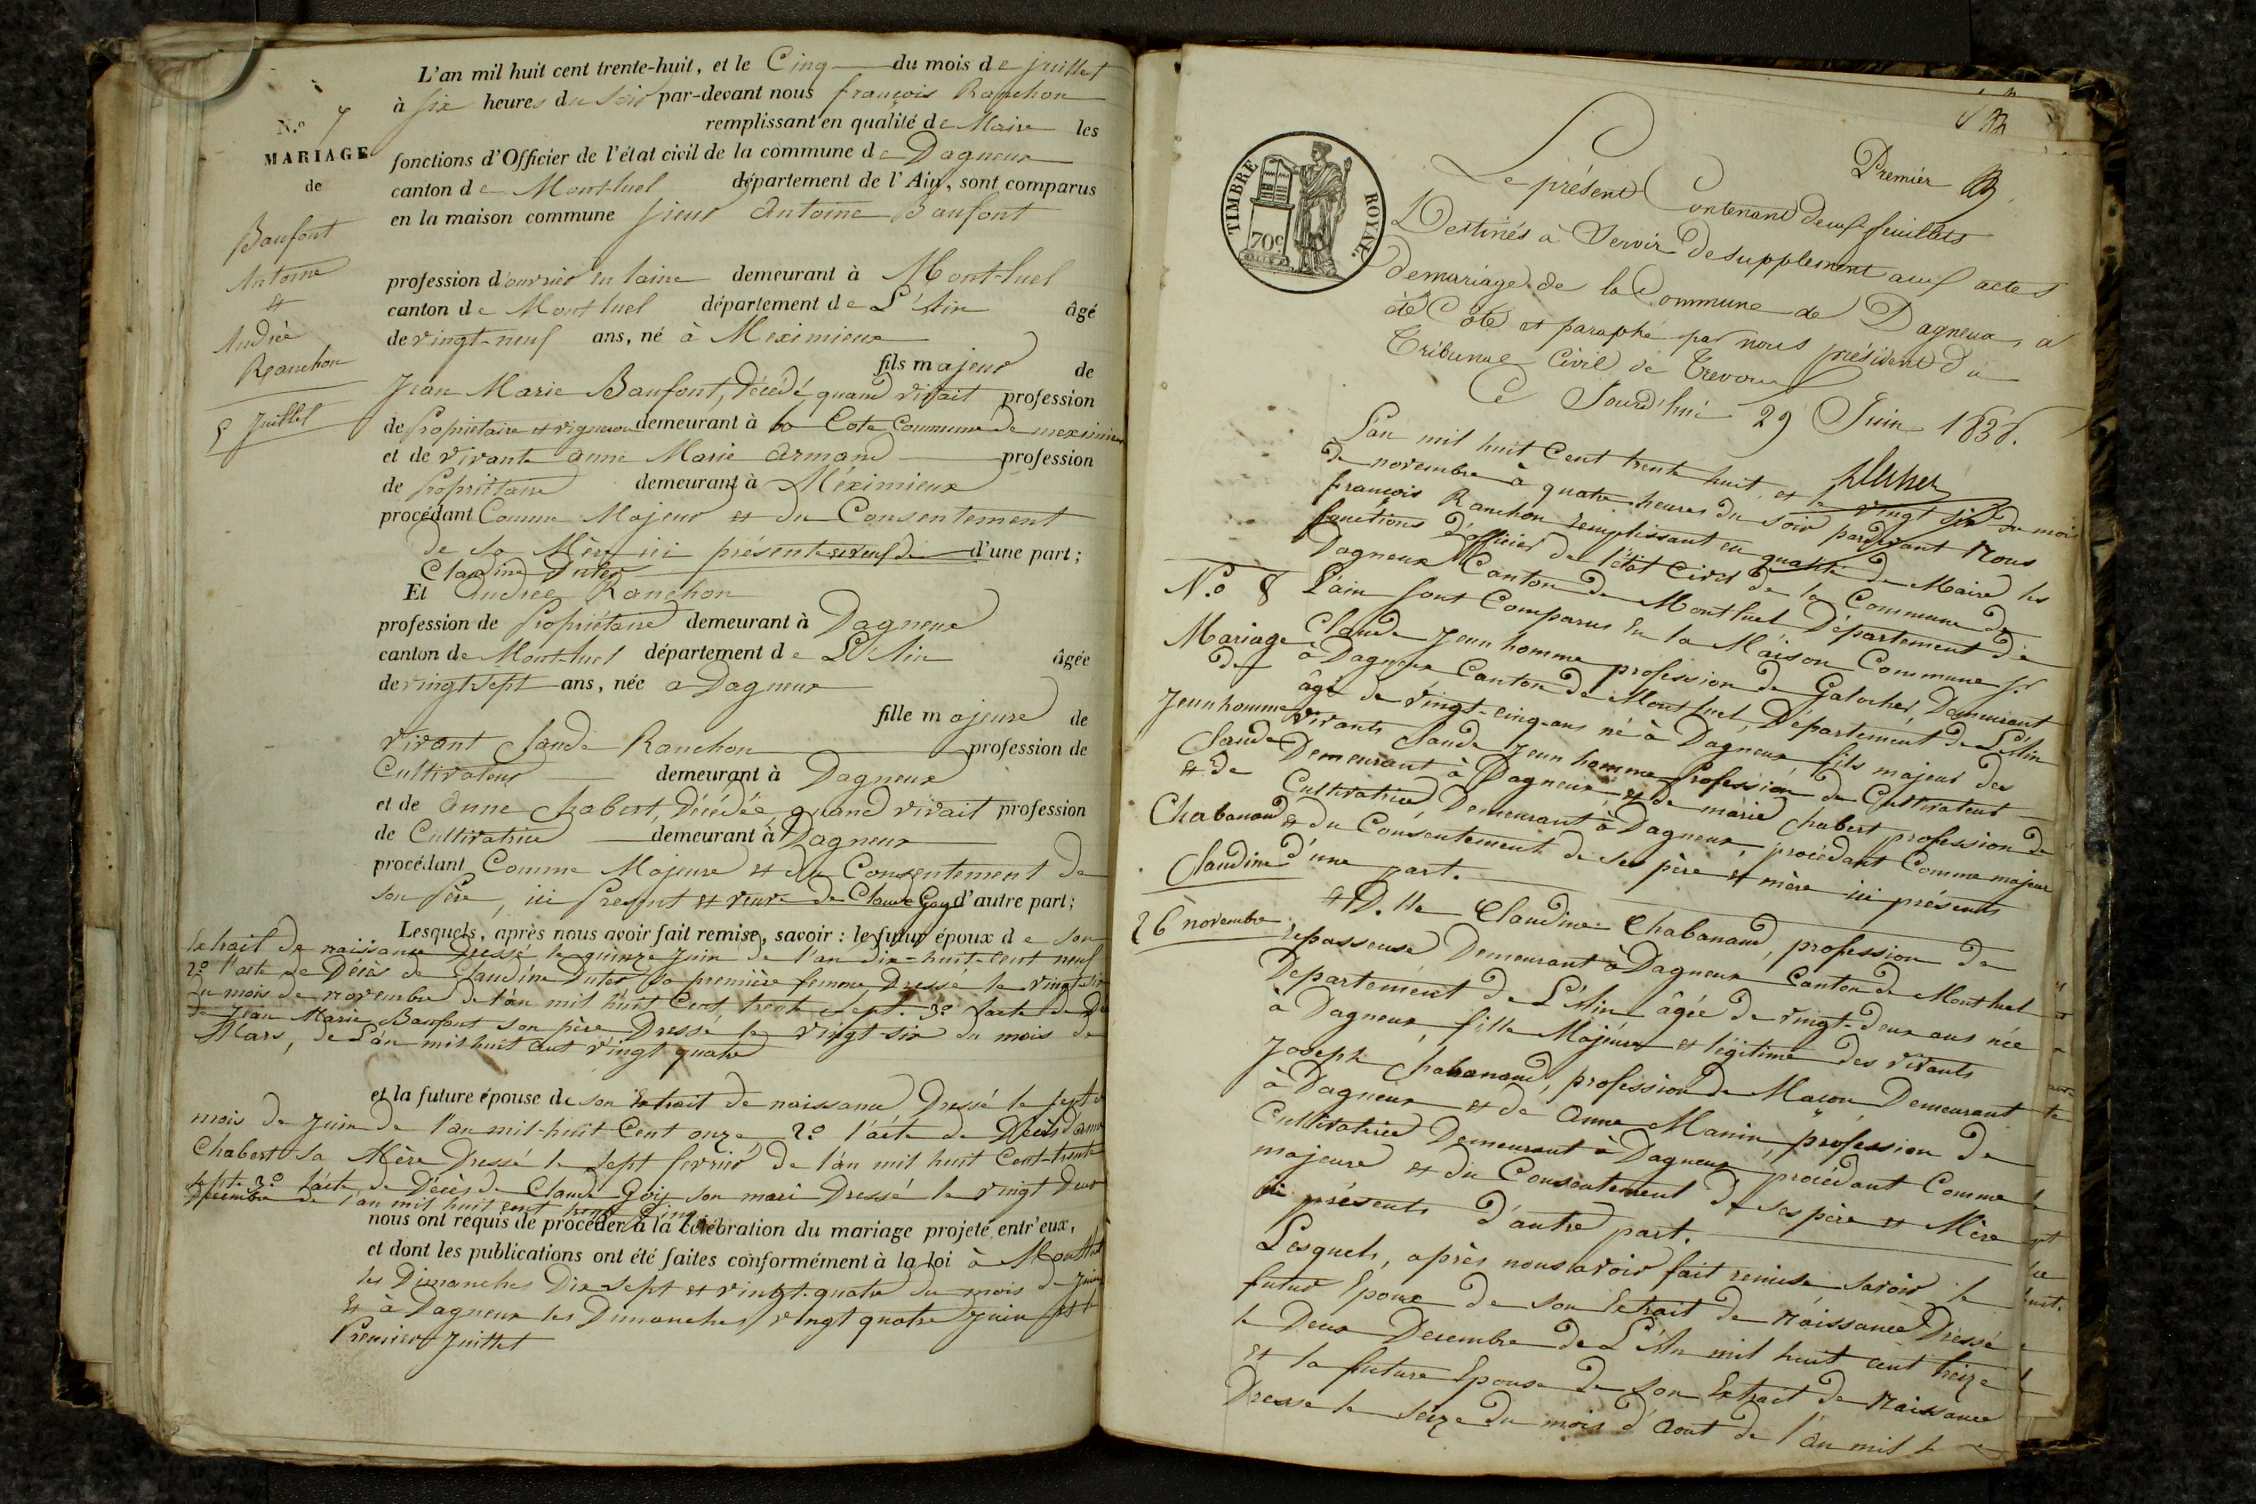 L'an mil huit cent trente-huit, et le Cinq du mois de juillet
à six heures du soir par-devant nous françois Ranchon
remplissant en qualité de Maire les
N.º 7
MARIAGE
de
Baufont
Antoine
et
Andrée
Ranchon
5 Juillet
fonctions d'Officier de l'état civil de la commune de Dagneux
canton de Mont-luel département de l'Ain, sont comparus
en la maison commune sieur Antoine Baufont
profession d'ouvrier en laine demeurant à Mont-luel
canton de Mont luel département de L'Ain âgé
de vingt-neuf ans, né à Meximieux
fils majeur de
Jean Marie Baufont, décédé, quand vivait profession
de Propriétaire et vigneron demeurant à la Cote Commune de meximieux
et de vivante anne Marie Armand profession
de Propriétaire demeurant à Méximieux
procédant Comme Majeur et du Consentement
de sa Mère ici présente et veuf de d'une part;
Claudine Duter
Et Andrée Ranchon
profession de Propriétaire demeurant à Dagneux
canton de Mont-luel département de L'Ain âgée
de vingt sept ans, née a Dagneux
fille majeure de
vivant Claude Ranchon profession de
Cultivateur demeurant à Dagneux
et de Anne Chabert, Décédée, quand vivait profession
de Cultivatrice demeurant à Dagneux
procédant Comme Majeure et du Consentement de
son Père, ici Présent et veuve de Claude Goy d'autre part;
Lesquels, après nous avoir fait remise, savoir: le futur époux de son
Extrait de naissance Dressé le quinze juin de l'an dix-huit-cent neuf
2º l'acte de Décès de Claudine Duter sa première femme, Dressé le vingt-six
du mois de novembre de l'an mil huit Cent trente sept. 3º l'acte de Dès
de Jean Marie Baufont son père Dressé le vingt-six du mois de
Mars, de L'an mil huit cent vingt quatre
et la future épouse de son Extrait de naissance Dressé le sept du
mois de Juin de l'an mil-huit Cent onze, 2º l'acte de Décès d'anne
Chabert sa Mère Dressé le sept février de l'an mil huit Cent-trente
sept. 3º l'acte de Décès de Claude Goy son mari Dressé le vingt Deux
Décembre de l'an mil huit cent trente Cinq
nous ont requis de procéder à la célébration du mariage projeté entr'eux,
et dont les publications ont été faites conformément à la loi à Montluel
les Dimanches Dix sept et vingt-quatre du mois de Juin
et à Dagneux les Dimanches vingt quatre juin et le
Premier Juillet
TIMBRE ROYAL
70c
Premier
Le présent Contenant deux feuillets
Destinés à Servir de supplement aux actes
de mariage de la Commune de Dagneux, a
été Coté et paraphé par nous président du
Tribunal Civil de Trevoux
Ce Jourd'hui 29 Juin 1838.
L'an mil huit Cent trente huit, et le vingt six du mois
de novembre à quatre heures du soir pardevant Nous
françois Ranchon remplissant en qualité de Maire les
fonctions d'officier de l'état Civil de la Commune de
Dagneux Canton de Montluel Département de
L'ain sont Comparus En la Maison Commune sr
Claude Jeunhomme profession de Galocher, Demeurant
à Dagneux Canton de Montluel, Département de L'Ain
âgé de vingt-cinq ans né à Dagneux fils majeur des
vivants Claude Jeunhomme profession de Cultivateur
Demeurant à Dagneux et de marie Chabert profession de
Cultivatrice Demeurant à Dagneux, procédant Comme majeur
et du Consentement de ses père et mère ici présents
d'une part.
N.º 8
Mariage
de
Jeunhomme
Claude
et de
Chabanand
Claudine
26 novembre
et D.lle Claudine Chabanand, profession de
repasseuse Demeurant à Dagneux Canton de Montluel
Departement de L'Ain âgée de vingt-deux ans née
à Dagneux, fille Majeure et légitime des vivants
Joseph Chabanand, profession de Maçon Demeurant
à Dagneux et de Anne Manin, profession de
Cultivatrice Demeurant à Dagneux procédant Comme
majeure et du Consentement de ses père et Mère
ici présents d'autre part.
Lesquels, après nous avoir fait remise, savoir le
futur Epoux de son Extrait de Naissance Dressé
le Deux Decembre de L'An mil huit cent treize
et la future Epouse de son Extrait de Naissance
Dresse le seize du mois d'Aout de l'an mil h